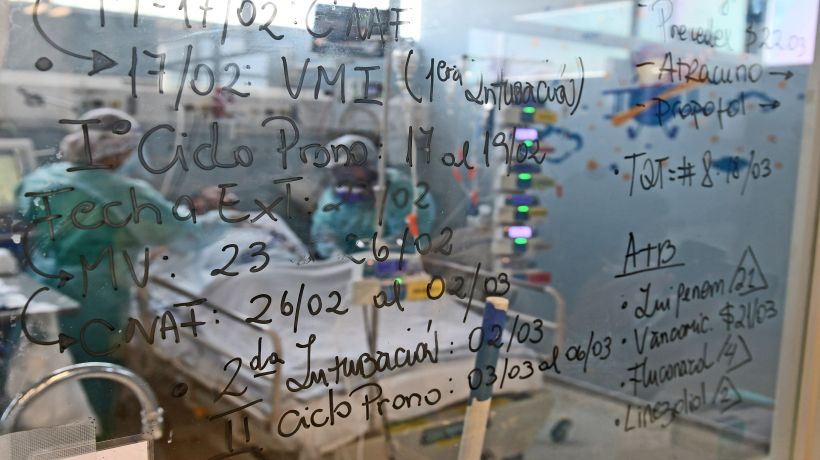 11-17/02: CNAF
17/02: VMI (1era Intubación)
I° Ciclo Prono: 17 al 19/02
Fecha Ext: /02
MV: 23 26/02
CNAF: 26/02 al 02/03
2da Intubación: 02/03
II Ciclo Prono: 03/03 al 06/03
Precedex $22.03
- Atracurio →
- Propofol →
TQT = # 8 18/03
ATB
• Imipenem /21
• Vancomic. $ 21/03
• Fluconazol /4
• Linezolid /2